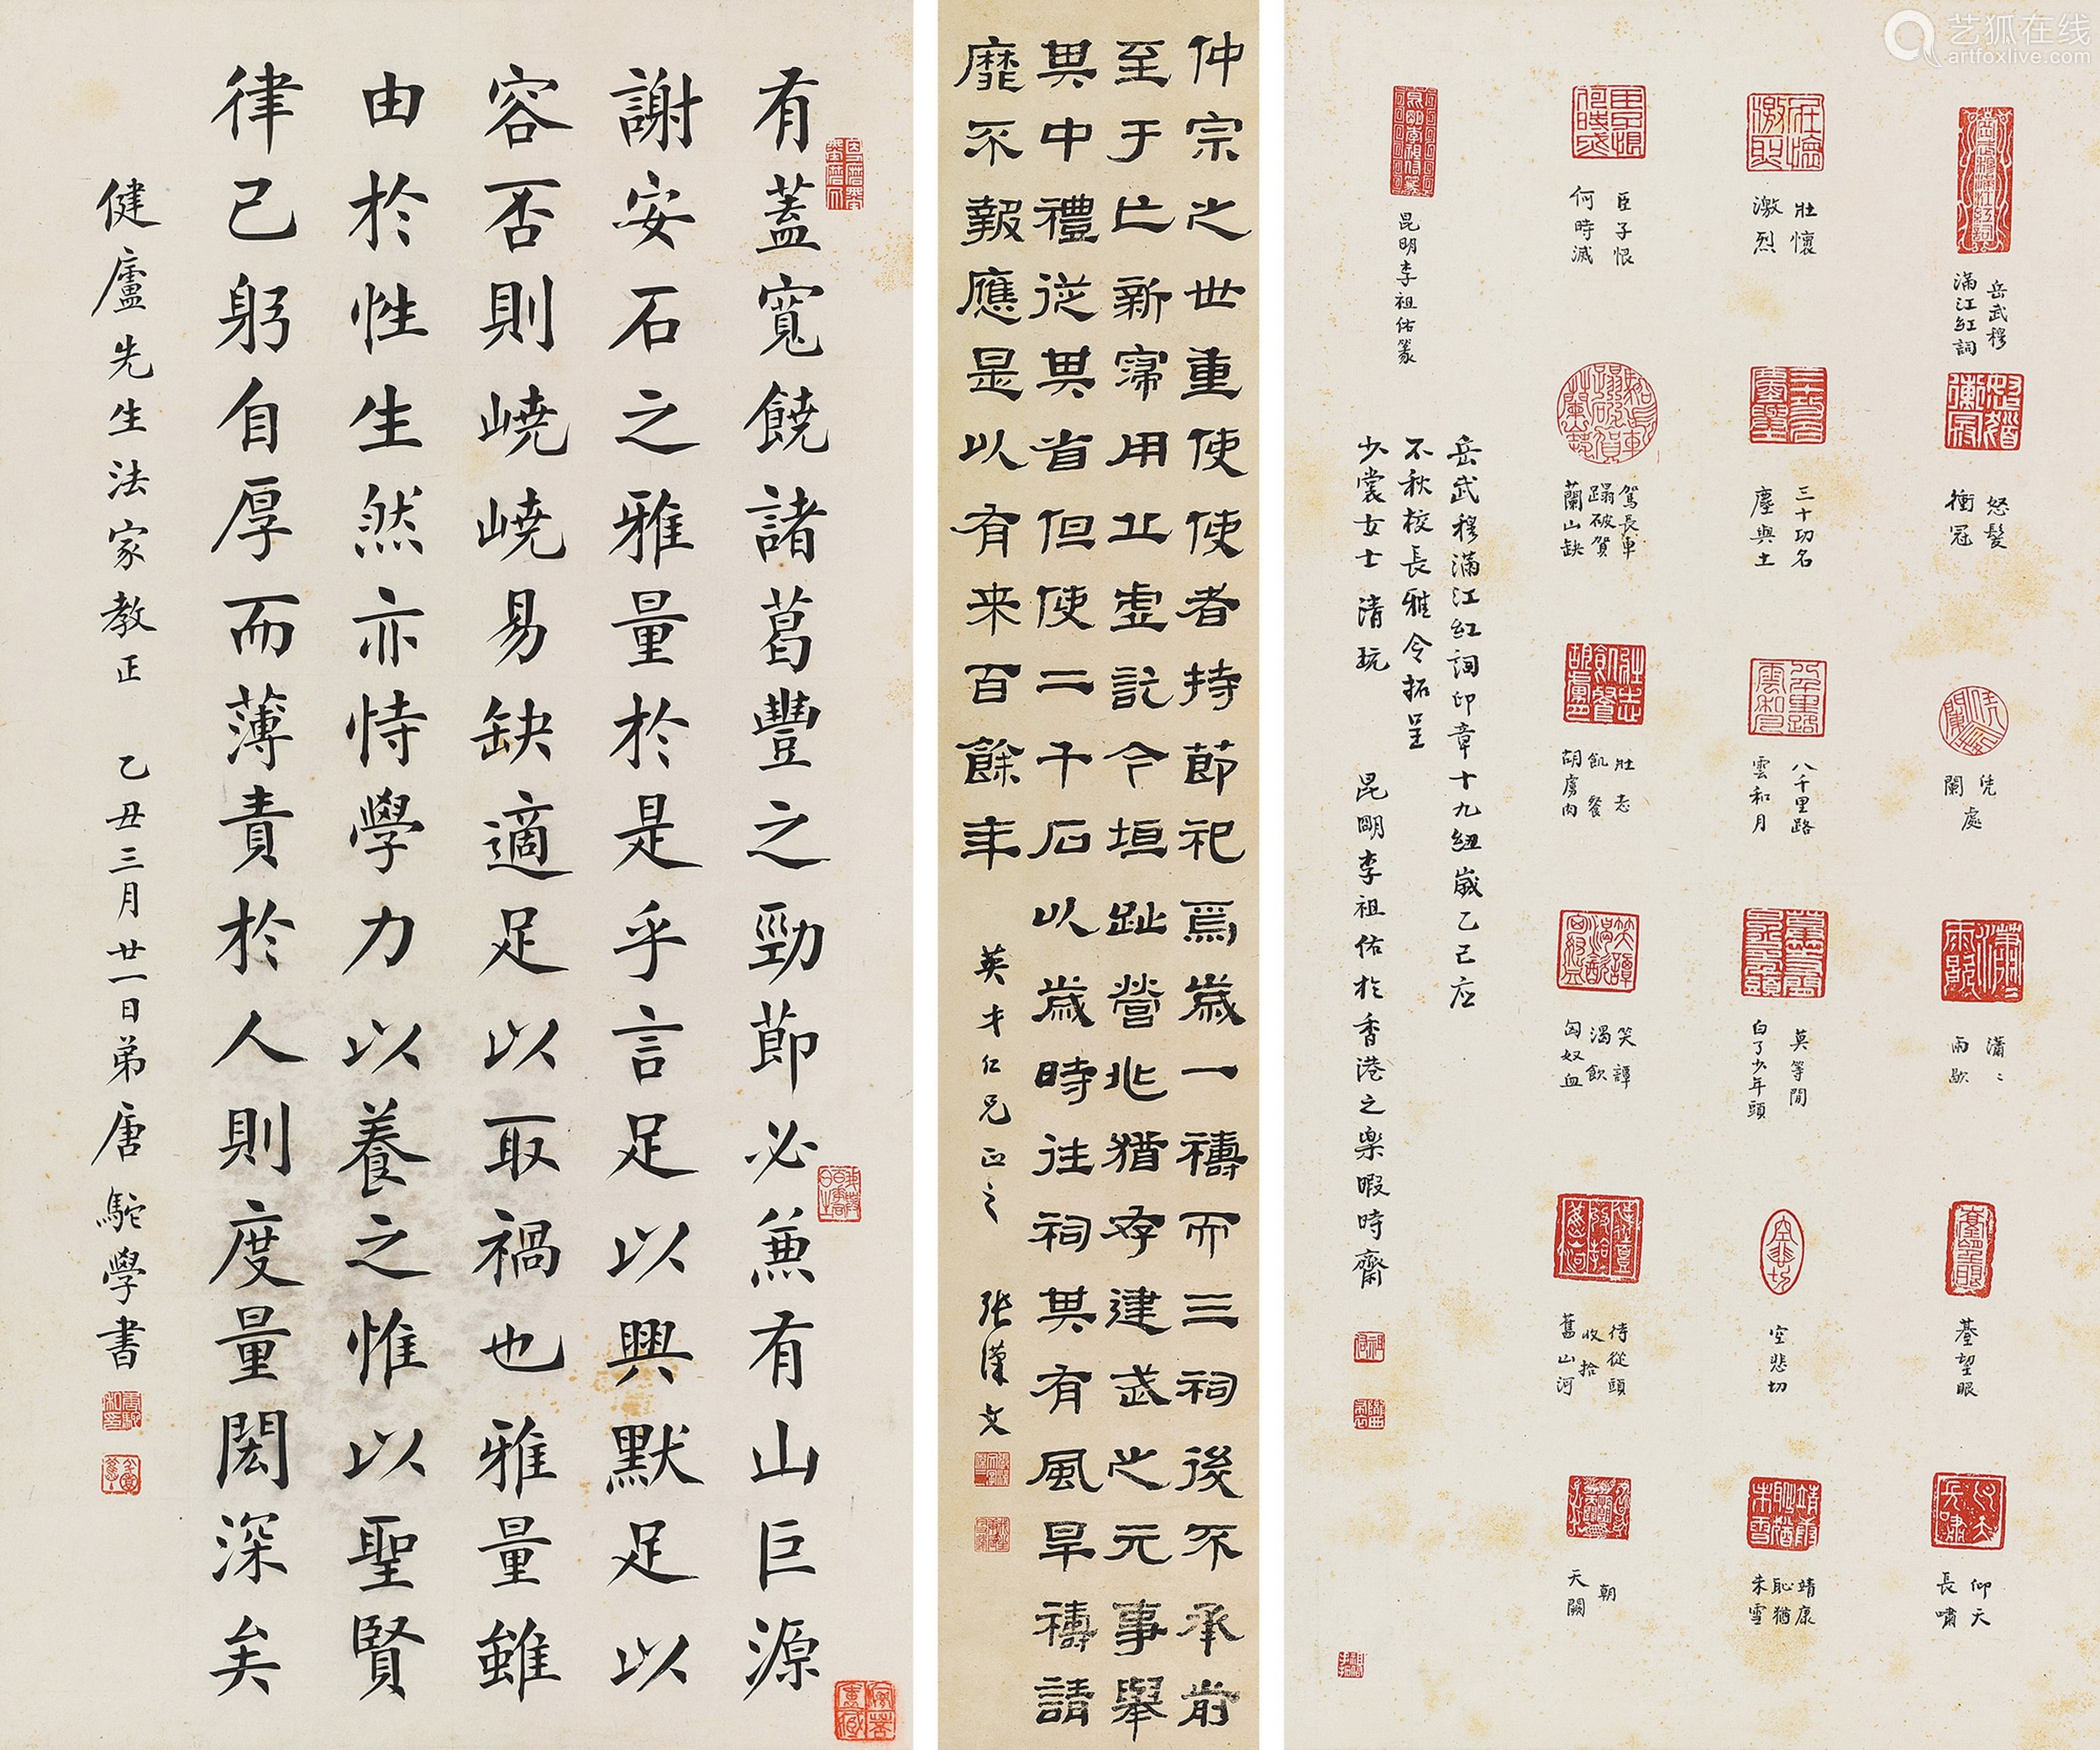 有蓋寬饒諸葛豐之勁節必兼有山巨源
謝安石之雅量於是乎言足以興默足以
容否則嶢嶢易缺適足以取禍也雅量雖
由於性生然亦恃學力以養之惟以聖賢
律己躬自厚而薄責於人則度量閎深矣
健廬先生法家教正 乙丑三月廿一日弟唐駝學書
仲宗之世重使使者持節祀焉歲一禱而三祠後不承前
至于亡新寖用丘虛訖今垣趾營兆猶存建武之元事舉
其中禮從其省但使二千石以歲時往祠其有風旱禱請
靡不報應是以有来百餘年
英才仁兄正之 張漢文
岳武穆
滿江紅詞
怒髮
衝冠
凭
闌
處
瀟瀟
雨歇
擡望眼
仰天
長嘯
壯懷
激烈
三十功名
塵與土
八千里路
雲和月
莫等閒
白了少年頭
空悲切
靖康
恥猶
未雪
臣子恨
何時滅
駕長車
蹋破賀
蘭山缺
壯志
飢餐
胡虜肉
笑譚
渴飲
匈奴血
待從頭
收拾
舊山河
朝
天闕
昆明李祖佑篆
岳武穆滿江紅詞印章十九紐歲乙已应
不秋校長雅令拓呈
少裳女士清玩 昆明李祖佑於香港之樂暇時齋
艺狐在线
artfoxlive.com